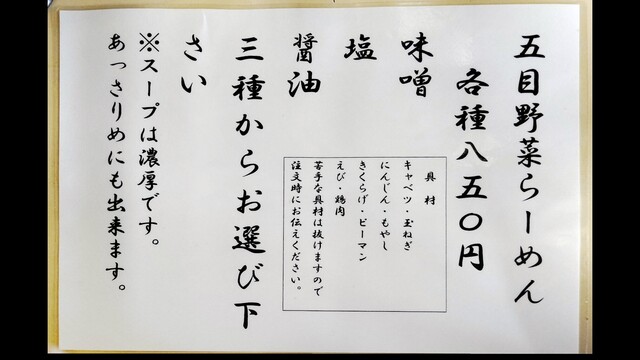 五目野菜らーめん
各種八五〇円
味噌
塩
醤油
三種からお選び下
さい
※スープは濃厚です。
あっさりめにも出来ます。
具材
キャベツ・玉ねぎ
にんじん・もやし
きくらげ・ピーマン
えび・鶏肉
苦手な具材は抜けますので
注文時にお伝えください。